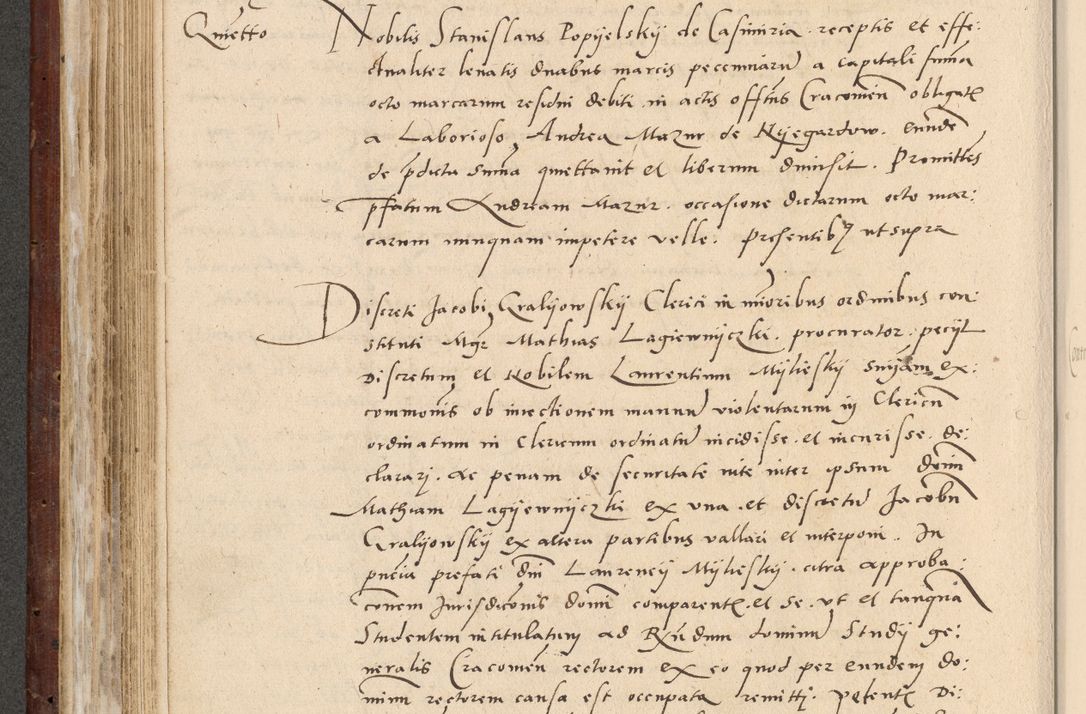 Quietto
Nobilis Stanislaus Popyelskÿ de Casimiria receptis et effe:
ctualiter levatis duabus marcis pecuniarũ a capitali sũma
octo marcarum residui debiti in actis offitus Cracovieñ obligatę
a Laborioso Andrea Mazur de Kÿegardow. eundẽ
de p̃dicta sum̃a quiettavit et liberum dimisit. Promittẽs
p̃fatum Andream Mazur. occasione dictarum octo mar:
carum nunquam impetere velle. Presentibꝫ ut supra
Discreti Jacobi Gralÿowskÿ Clerici in mĩoribus ordinibus con:
stituti Mgr̃ Mathias Lagiewnÿczki. procurator. peciit
Discretum et Nobilem Laurentium Mÿlieskÿ su̅ÿam ex:
com̃onis ob iniectionem manuũ violentarum in Clericũ
ordinatum in Clericum ordinatũ incidisse. et incurisse. de:
clarari. Ac penam de securitate vite inter ipsum Dñum
Mathiam Lagÿewnÿczki ex una. et discretũ Jacobũ
Gralÿowskÿ ex altera partibus vallari et interponi. In
p̃ncia prefati Dñi Laurencÿ Mÿlieskÿ. citra approba
cionem Jurisdicõnis domini comparentę. et se. ut et tanquã
Studentem intitulatum ad R̃ndum dominũ Studÿ ge:
neralis Cracovieñ rectorem ex eo quod per eundem do:
minum rectorem causa est occupata remitti. Petentę Di: